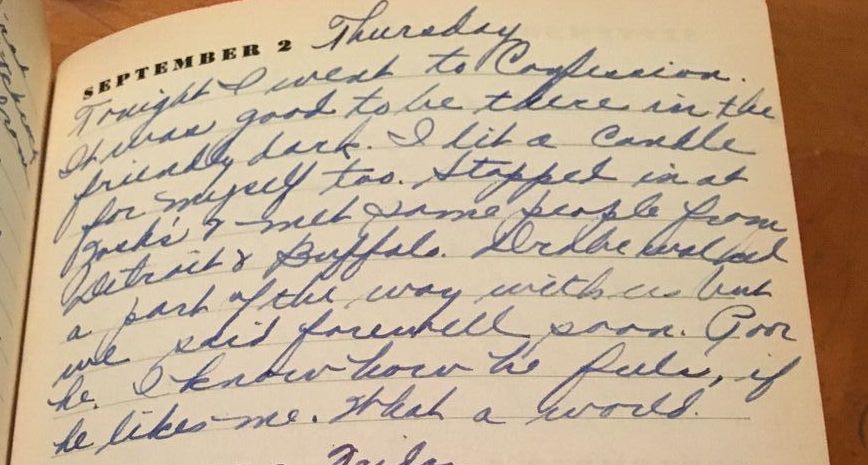 SEPTEMBER 2 Thursday
Tonight I went to Confession.
It was good to be there in the
friendly dark. I lit a candle
for myself too. Stopped in at
& met some people from
Detroit & Buffalo. walked
a part of the way with us but
we said farewell soon. Poor
he. I know how he feels, if
he likes me. What a world.